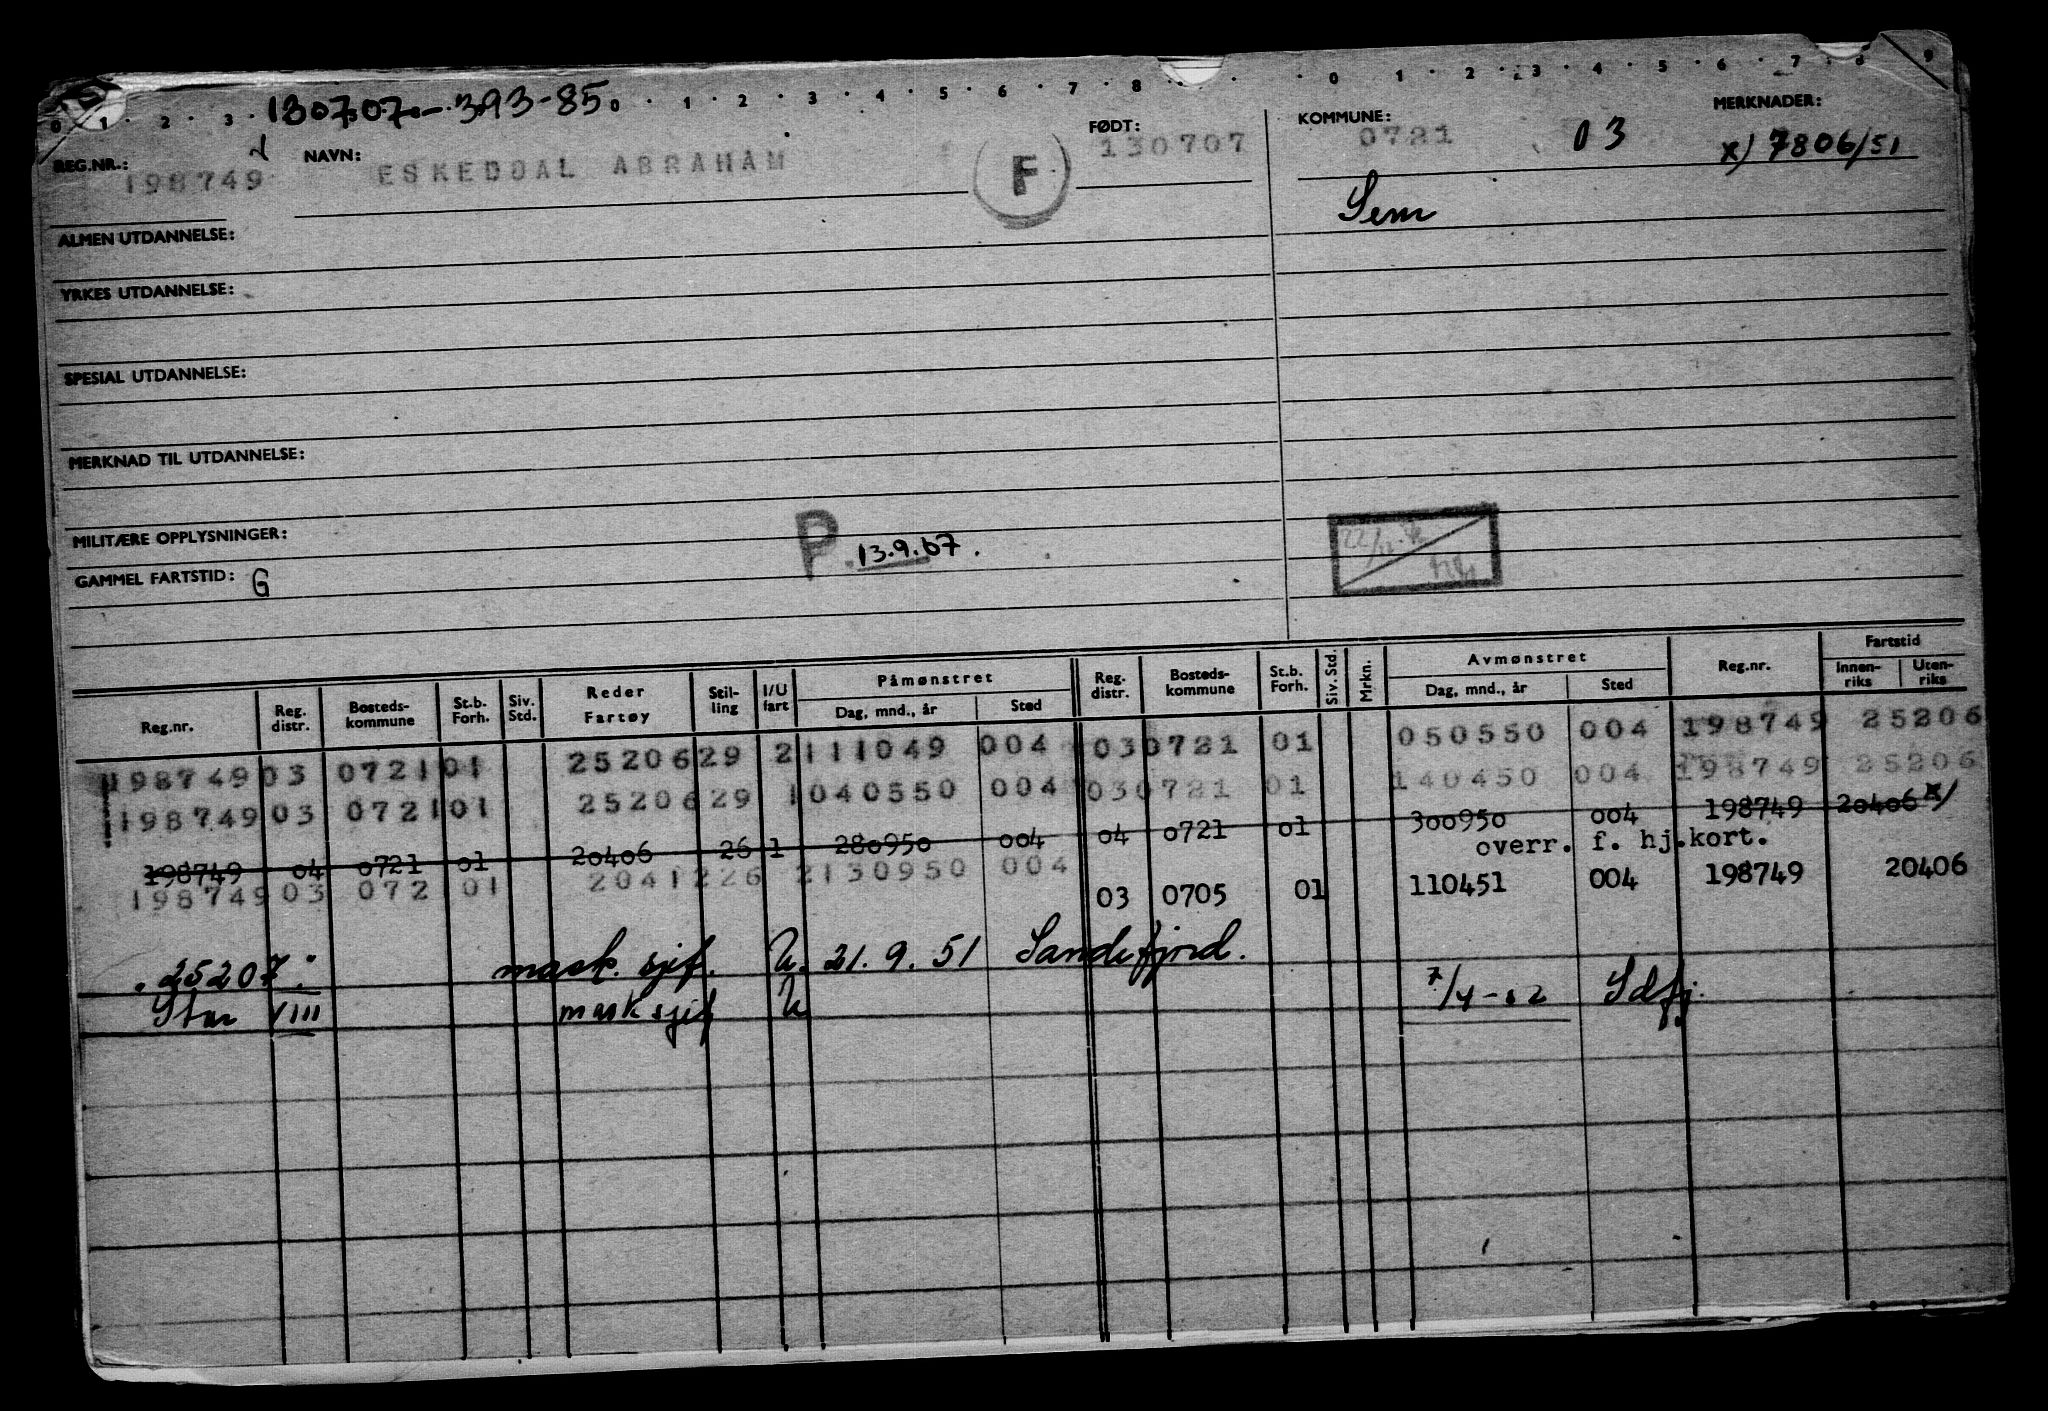 0 1 2 3 130707 - 393-85 0 1 2 3 4 5 6 7 8 0 1 2 3 4 5 6 7 8 9
REG.NR.: 198749 NAVN: ESKEDAL ABRAHAM F FØDT: 130707 KOMMUNE: 0721 03 MERKNADER: x) 7806/51
Sem
ALMEN UTDANNELSE:
YRKES UTDANNELSE:
SPESIAL UTDANNELSE:
MERKNAD TIL UTDANNELSE:
MILITÆRE OPPLYSNINGER: P 13.9.67.
GAMMEL FARTSTID: G
Reg.nr. Reg. distr. Bosteds-kommune St.b. Forh. Siv. Std. Reder Fartøy Stil-ling I/U fart Påmønstret Dag, mnd., år Sted Reg. distr. Bosteds-kommune St.b. Forh. Siv. Std. Mrkn. Avmønstret Dag, mnd., år Sted Reg.nr. Fartstid Innen-riks Uten-riks
198749 03 0721 01 25206 29 2 111049 004 03 0721 01 050550 004 198749 25206
198749 03 0721 01 25206 29 1 040550 004 03 0721 01 140450 004 198749 25206
198749 04 0721 01 20406 26 1 280950 004 04 0721 01 300950 004 198749 20406 x)
overr. f. hj.kort.
198749 03 072 01 20412 26 2 130950 004 03 0705 01 110451 004 198749 20406
25207 mask. sjef. U. 21. 9. 51 Sandefjord.
Star VIII mask sjef U 7/4-52 Sdfj.